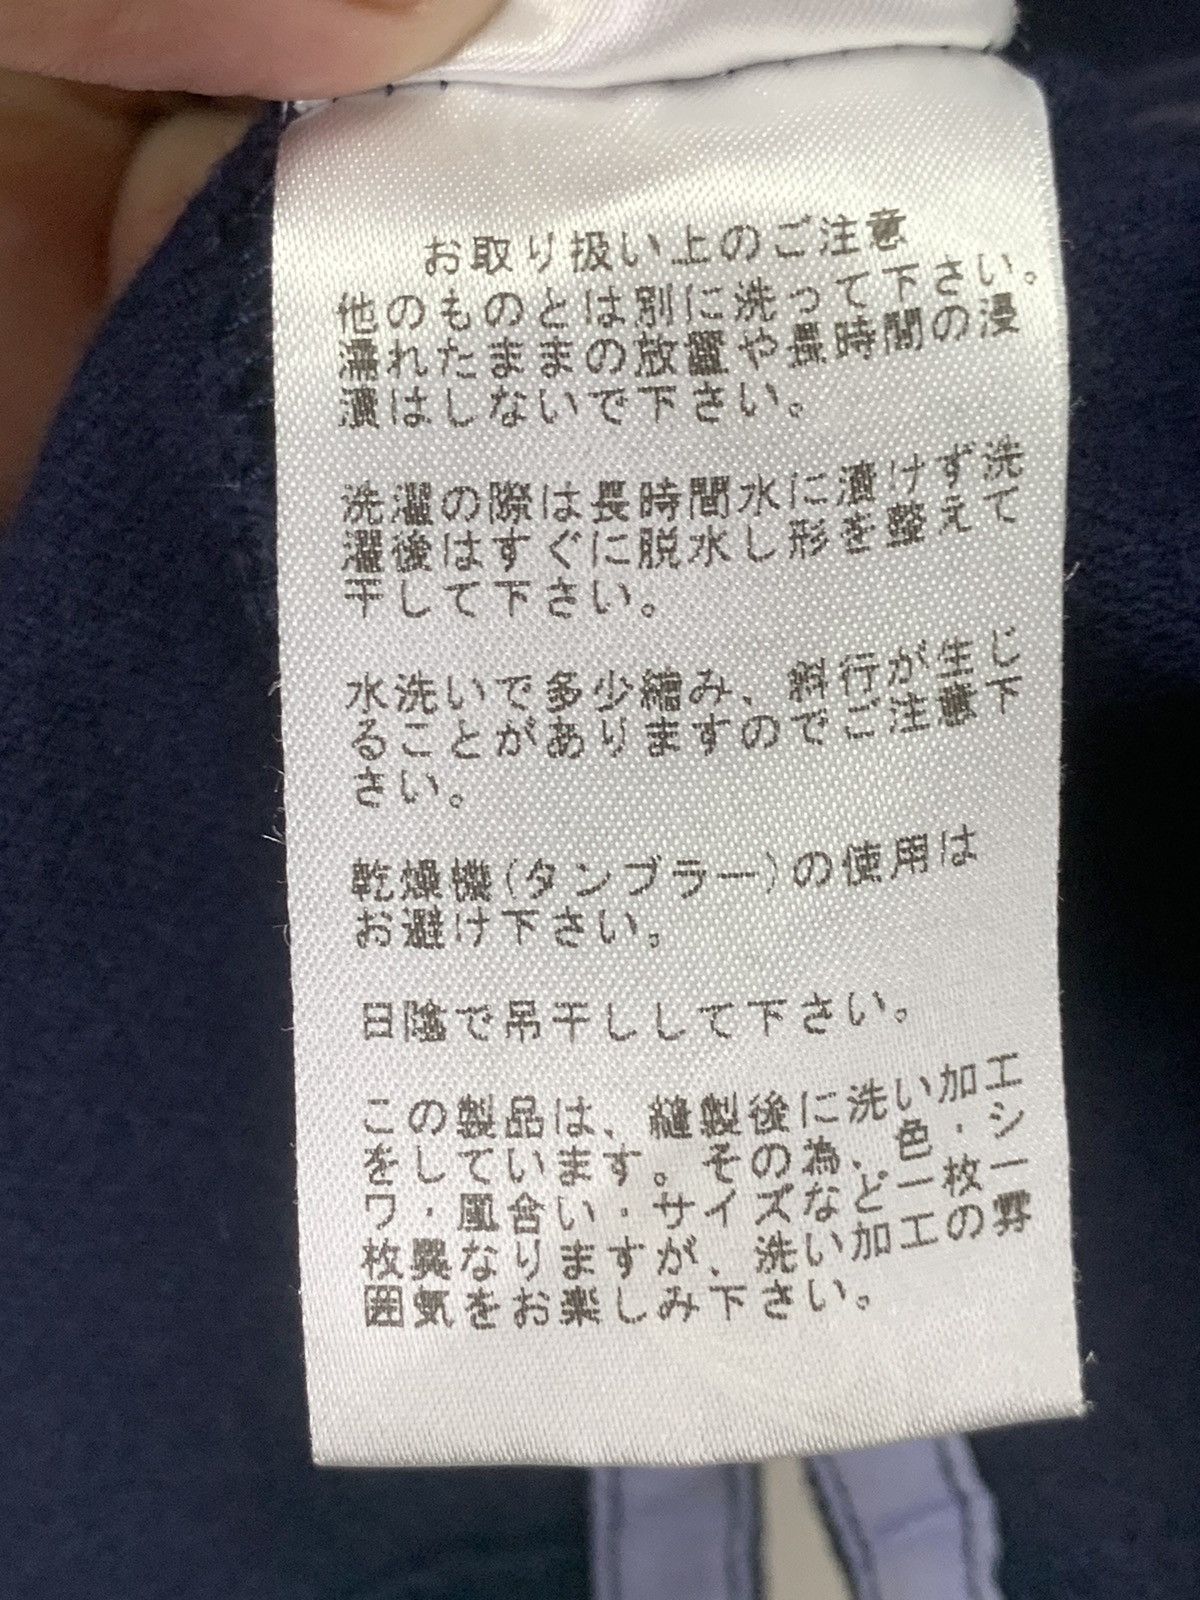 お取り扱い上のご注意
他のものとは別に洗って下さい。
濡れたままの放置や長時間の浸
漬はしないで下さい。
洗濯の際は長時間水に漬けず洗
濯後はすぐに脱水し形を整えて
干して下さい。
水洗いで多少縮み、斜行が生じ
ることがありますのでご注意下
さい。
乾燥機(タンブラー)の使用は
お避け下さい。
日陰で吊干しして下さい。
この製品は、縫製後に洗い加工
をしています。その為、色・シ
ワ・風合い・サイズなど一枚一
枚異なりますが、洗い加工の雰
囲気をお楽しみ下さい。